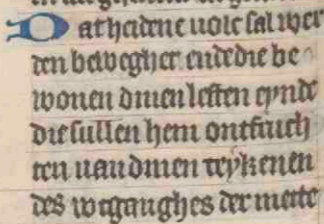 Dat heidene volc sal wer
den beweghet ende die be
wonen dinen lesten eynde
die sullen hem ontfruch
ten van dinen teykenen
des wtganghes der mette